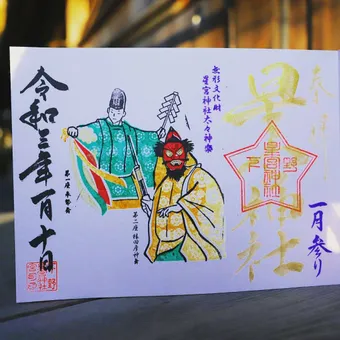 奉拝
星宮神社
下野
星宮神社
一月参り
無形文化財
星宮神社太々神楽
第一座 奉幣舞
第二座 猿田彦神舞
令和三年一月十日